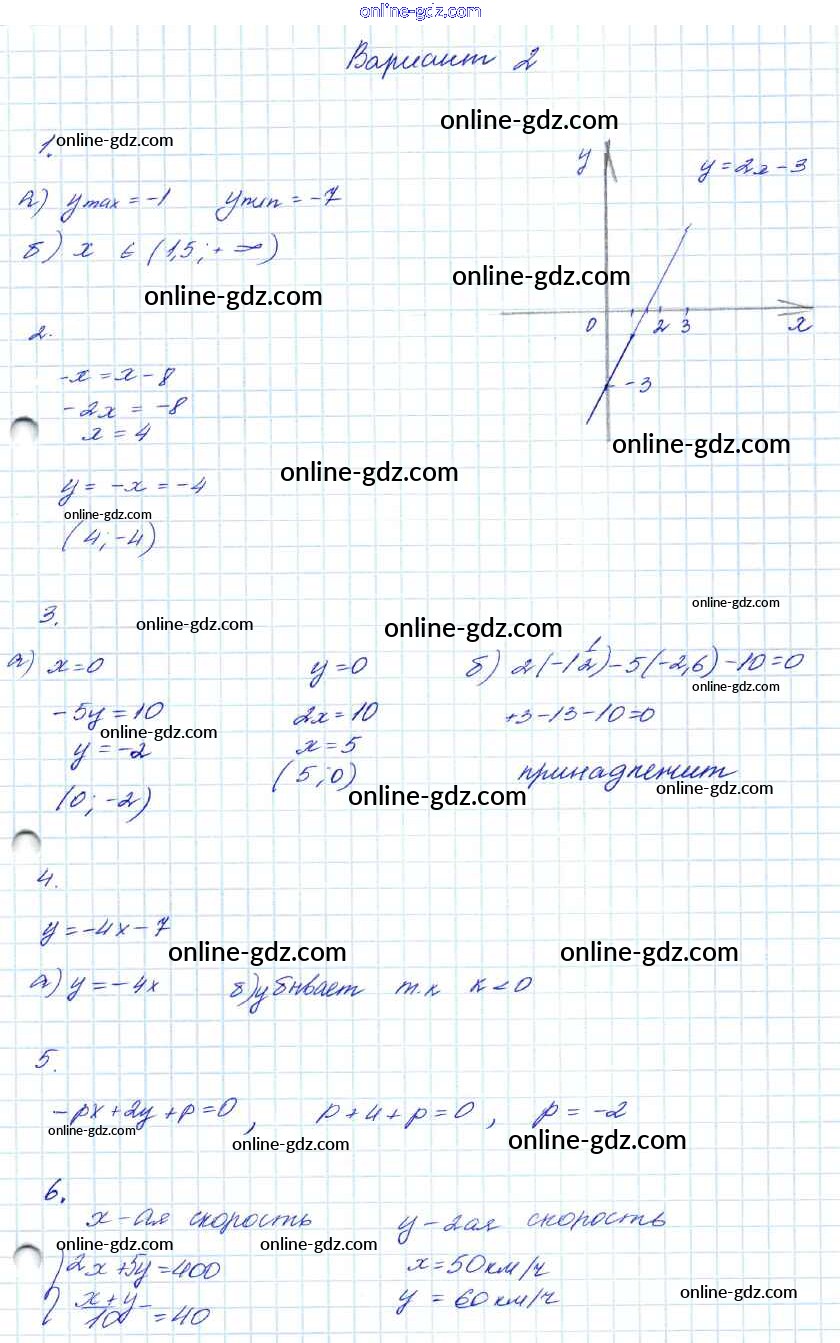 online-gdz.com
Вариант 2
online-gdz.com
1. online-gdz.com
y y = 2x - 3
а) ymax = -1 ymin = -7
б) x ∈ (1,5; +∞)
online-gdz.com
online-gdz.com
0 2 3 x
2.
-x = x - 8
-3
-2x = -8
x = 4
online-gdz.com
online-gdz.com
y = -x = -4
online-gdz.com
(4; -4)
online-gdz.com
3. online-gdz.com online-gdz.com
а) x = 0 y = 0 б) 2(-1 1/2) - 5(-2,6) - 10 = 0
online-gdz.com
-5y = 10 2x = 10 +3 - 13 - 10 = 0
online-gdz.com
y = -2 x = 5
(0; -2) (5; 0) принадлежит
online-gdz.com online-gdz.com
4.
y = -4x - 7
online-gdz.com online-gdz.com
а) y = -4x б) убывает т.к k < 0
5.
-px + 2y + p = 0, p + 4 + p = 0, p = -2
online-gdz.com online-gdz.com online-gdz.com
6.
x - ая скорость y - 2ая скорость
online-gdz.com online-gdz.com
2x + 5y = 400 x = 50 км/ч
x + y / 10 = 40 y = 60 км/ч
online-gdz.com